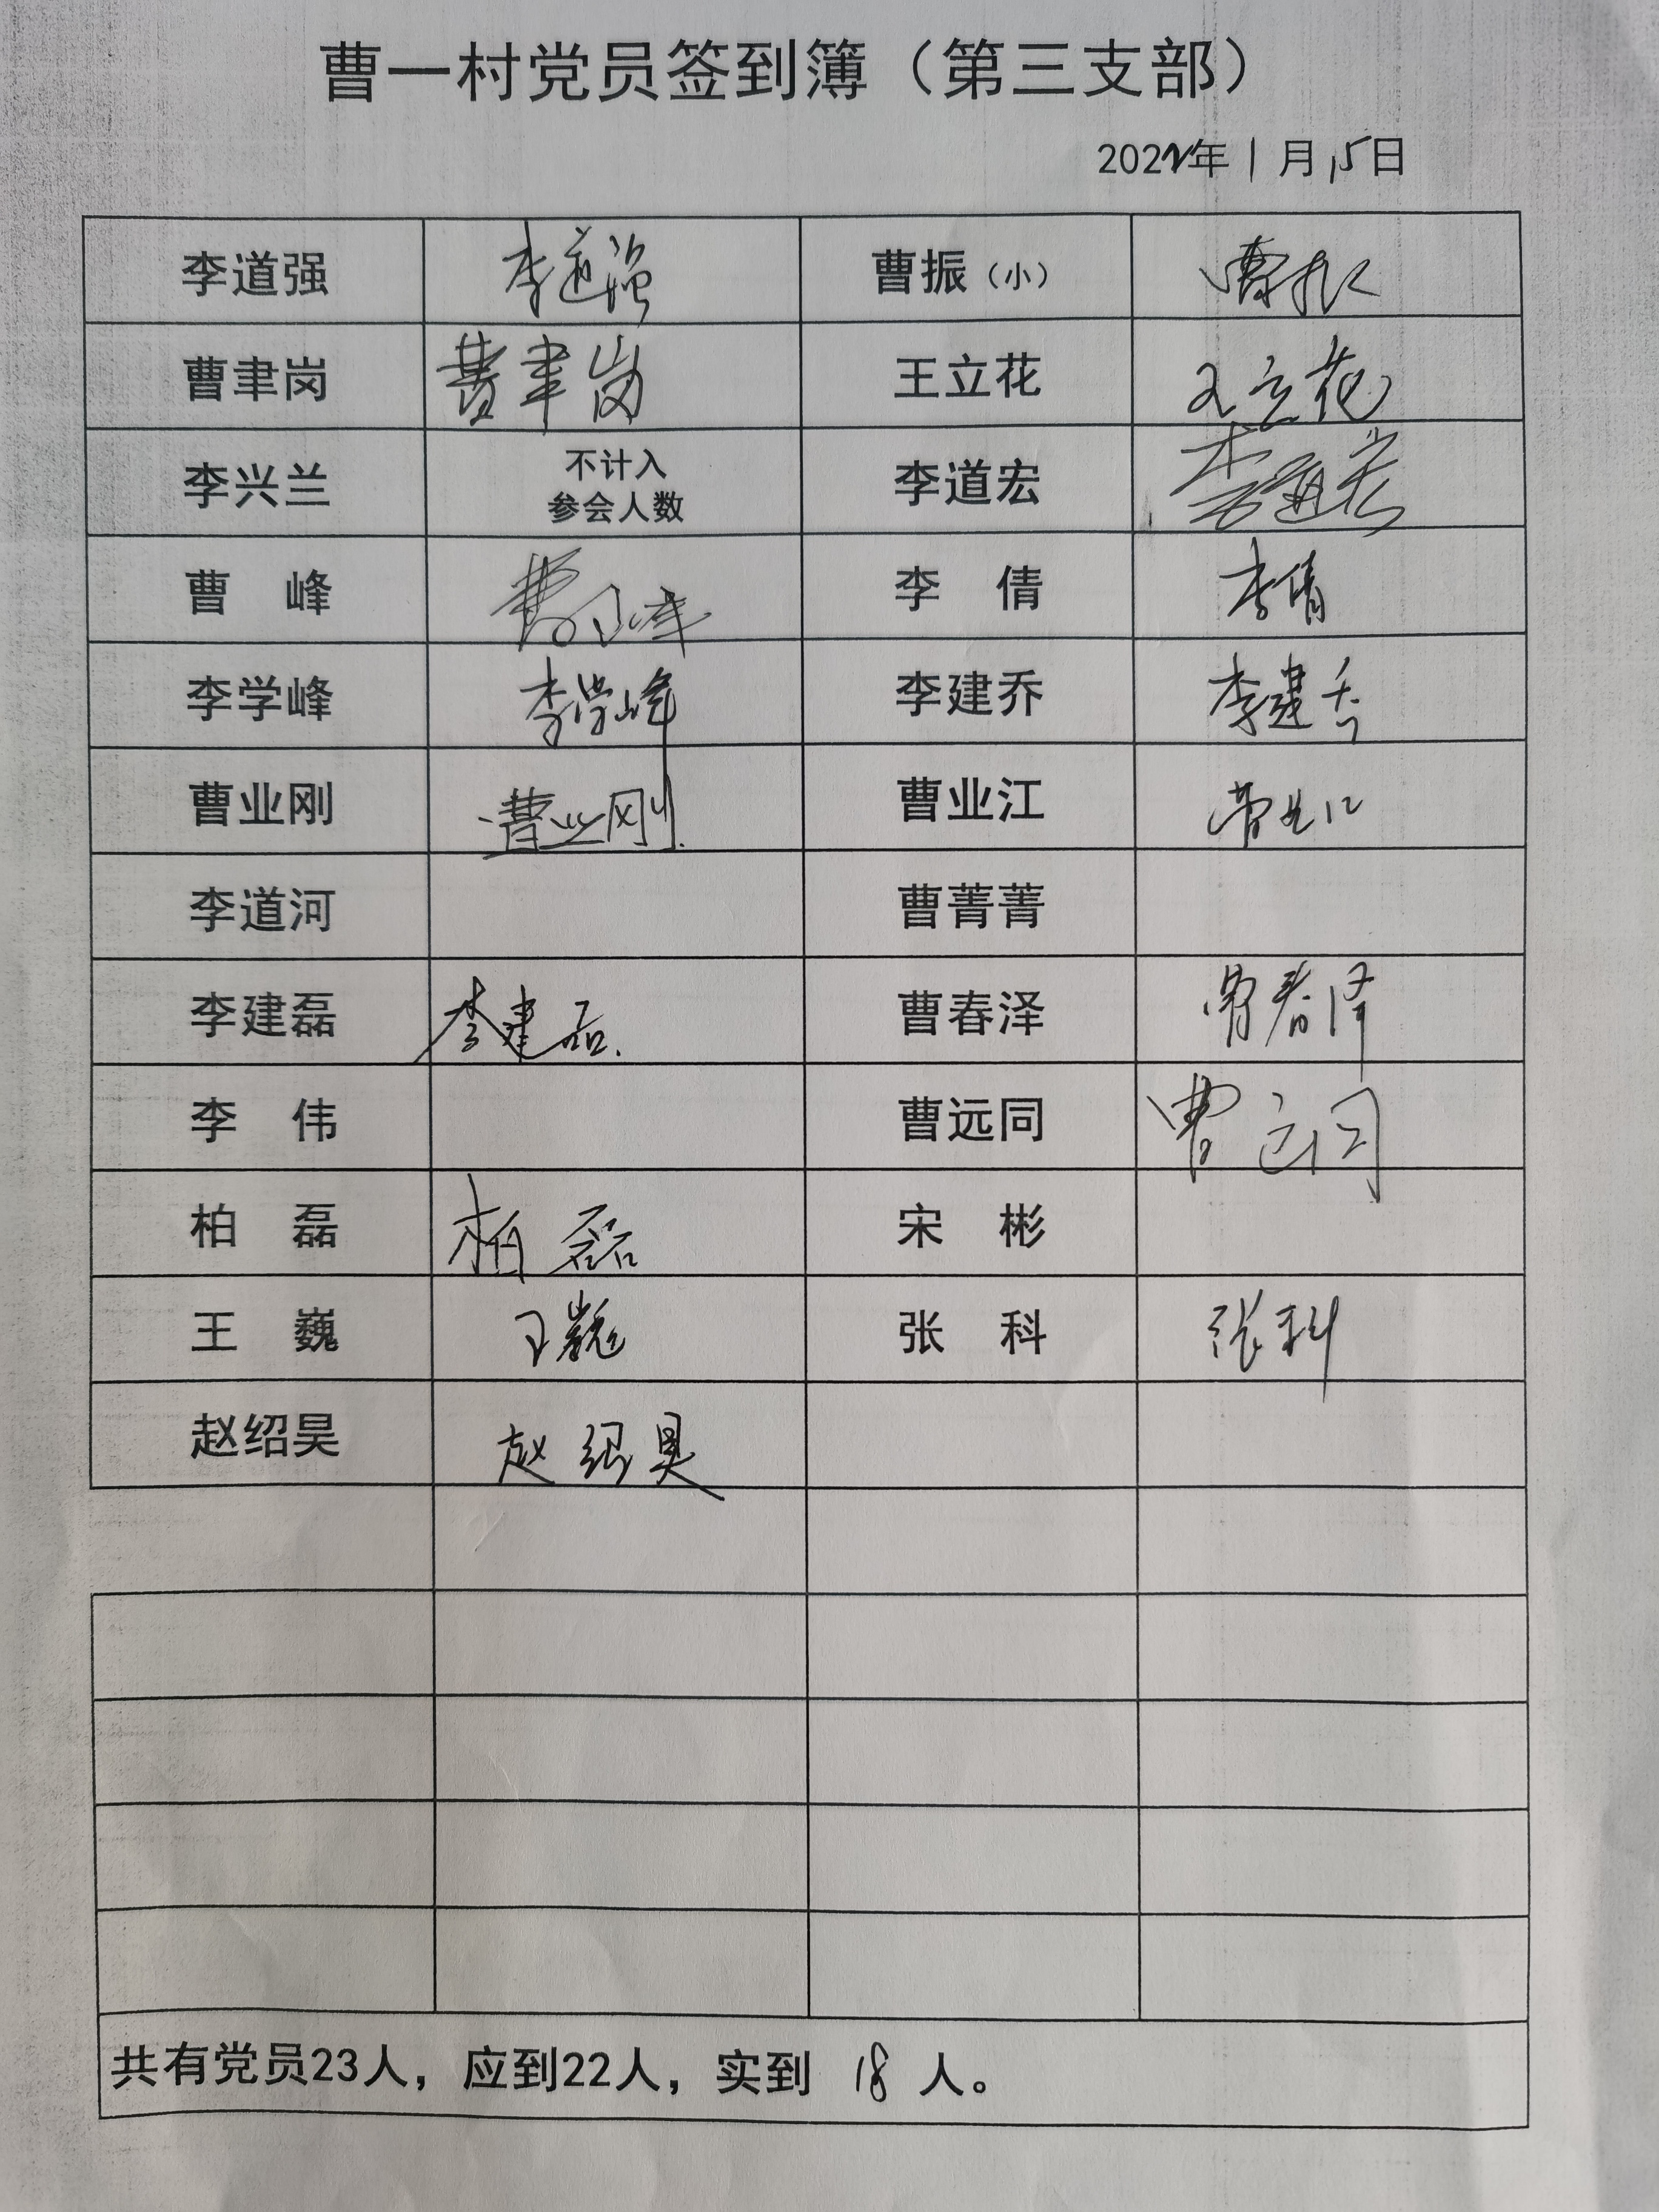 曹一村党员签到簿（第三支部）
2022年1月15日
李道强 李道强 曹振（小） 曹振
曹聿岗 曹聿岗 王立花 王立花
李兴兰 不计入 参会人数 李道宏 李道宏
曹 峰 曹峰 李 倩 李倩
李学峰 李学峰 李建乔 李建乔
曹业刚 曹业刚 曹业江 曹业江
李道河 曹菁菁
李建磊 李建磊 曹春泽 曹春泽
李 伟 曹远同 曹远同
柏 磊 柏磊 宋 彬
王 巍 王巍 张 科 张科
赵绍昊 赵绍昊
共有党员23人，应到22人，实到 18 人。